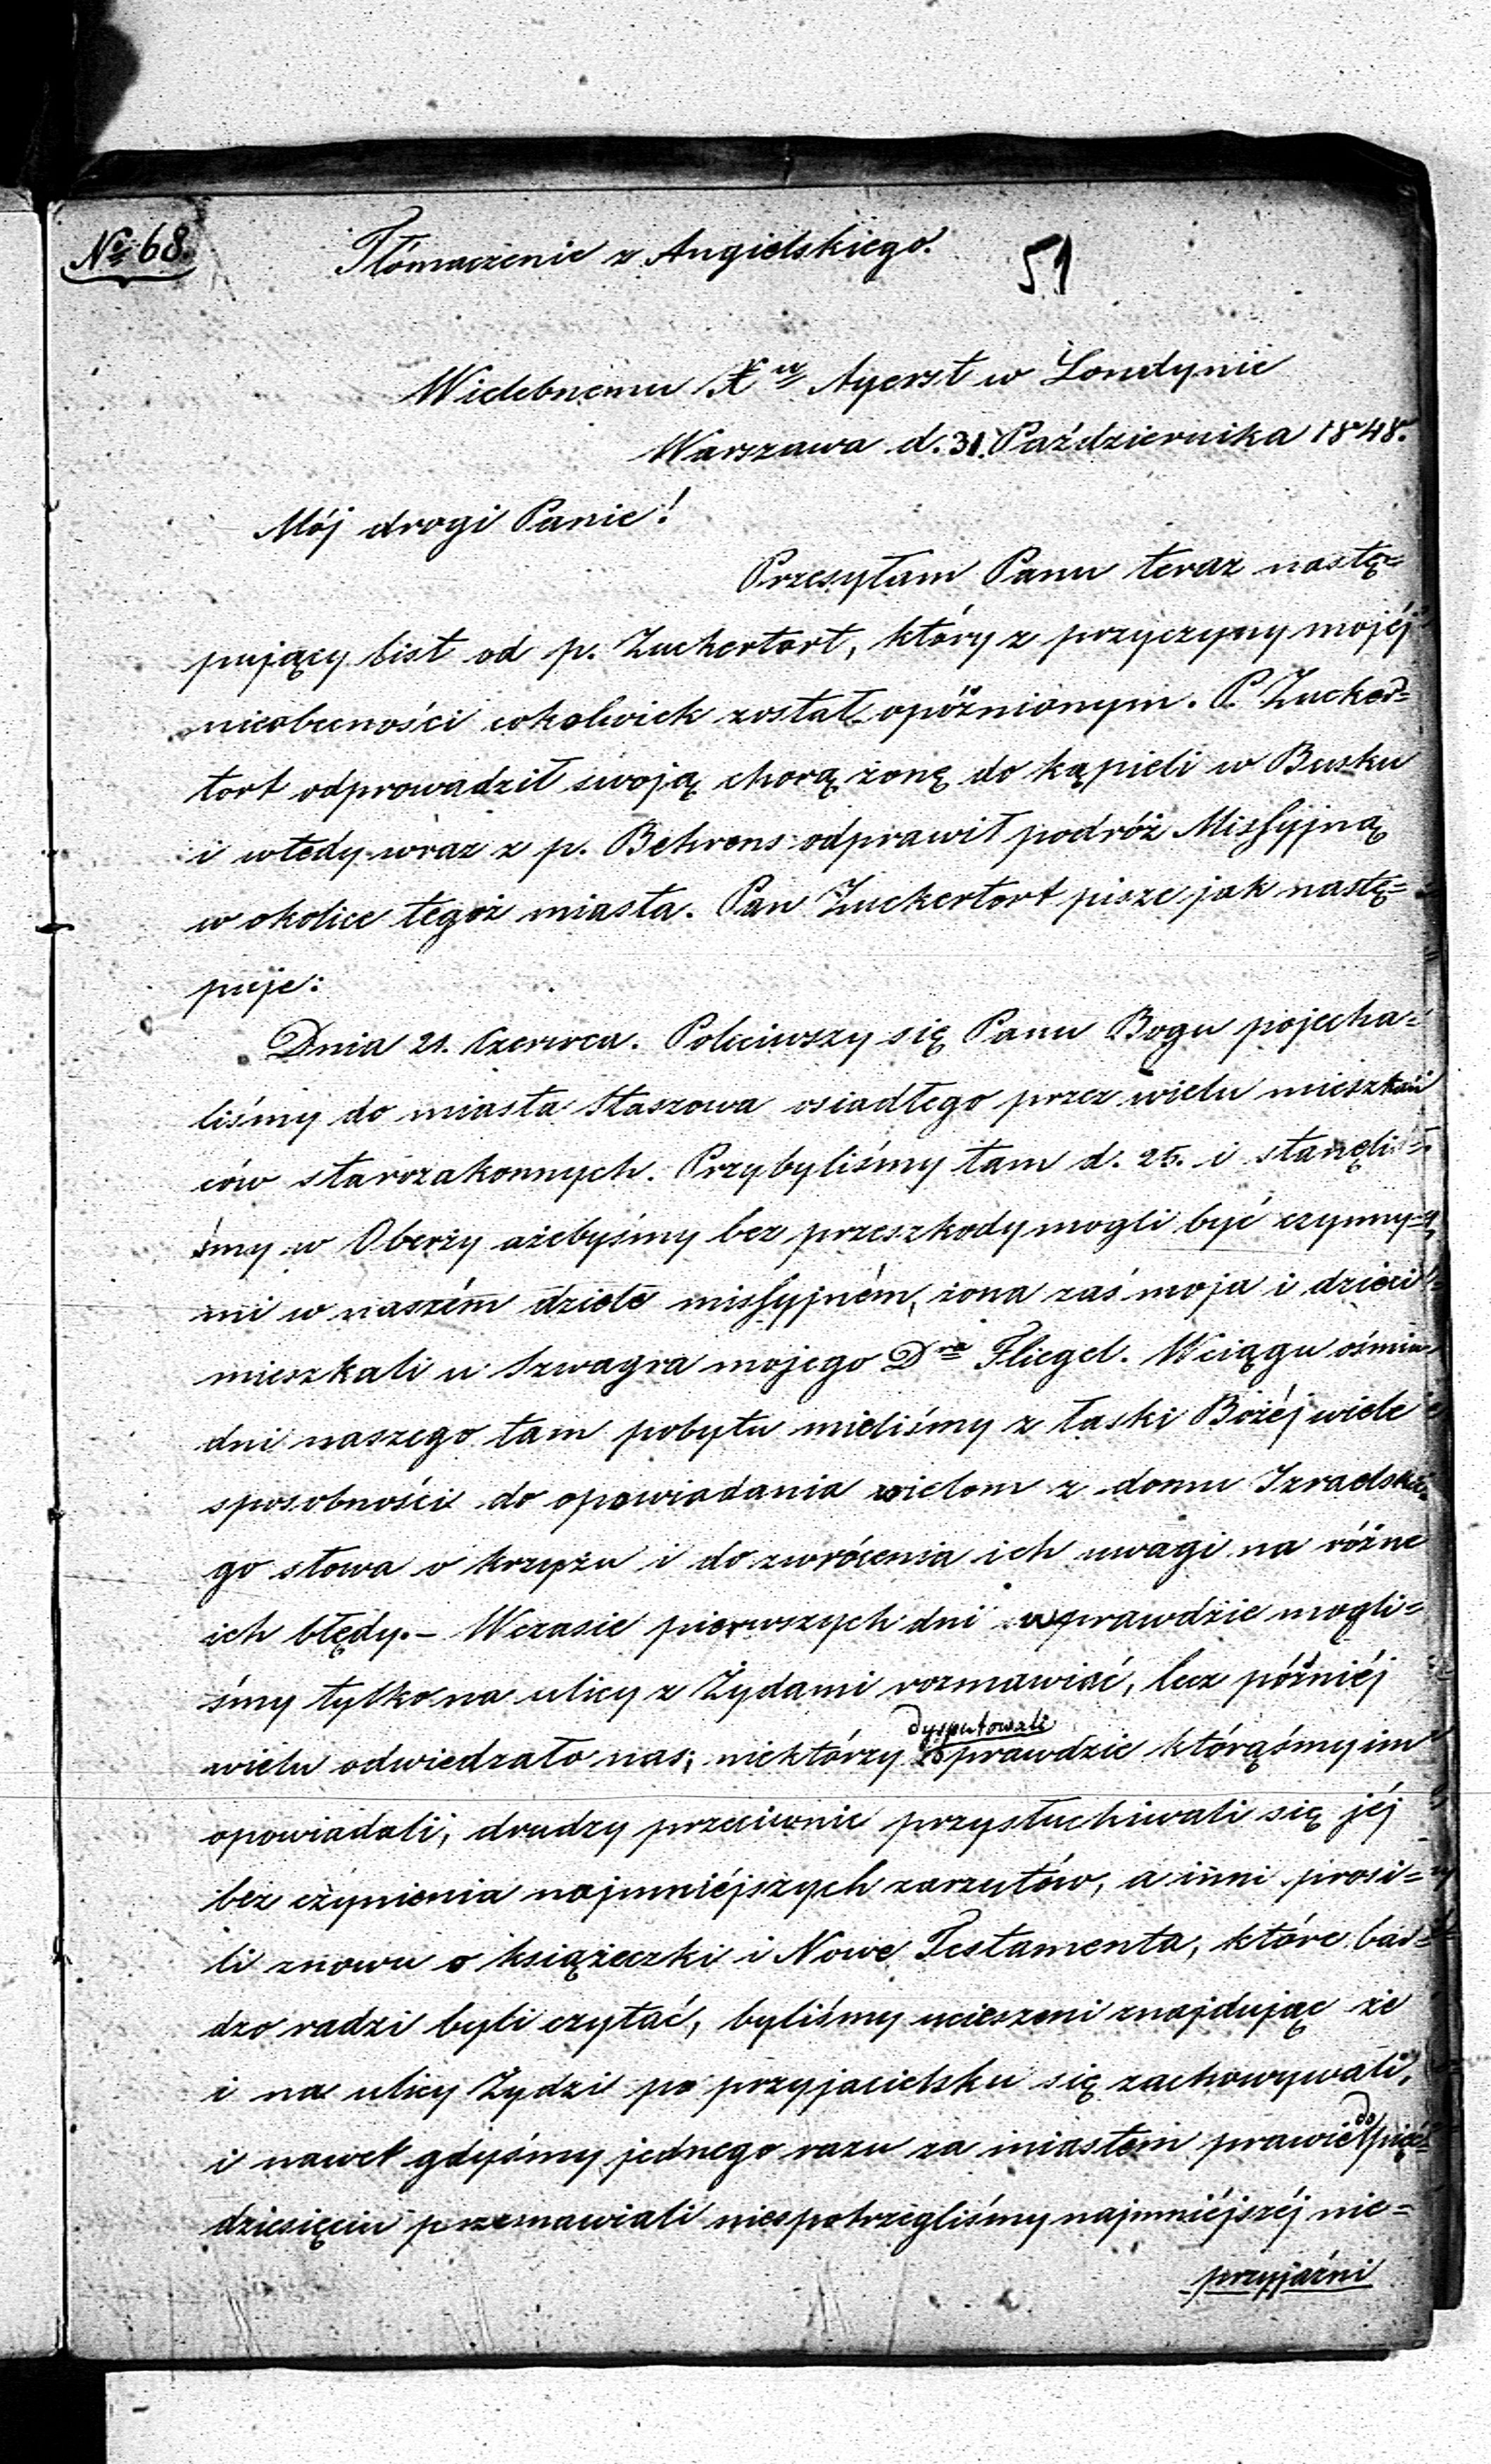 No 68.
Tłómaczenie z Angielskiego.
51
Wielebnemu Xu Ayerst w Londynie
Warszawa d. 31. Października 1848.
Mój drogi Panie!
Przesyłam Panu teraz nastę=
pujący list od p. Zuckertort, który z przyczyny mojéj
nieobecności cokolwiek został opóźnionym. P. Zucker=
tort odprowadził swoją chorą żonę do kąpieli w Busku
i wtedy wraz z p. Behrens odprawił podróż Missyjną
w okolice tegoż miasta. Pan Zuckertort pisze jak nastę=
puje:
Dnia 21. Czerwca. Poleciwszy się Panu Bogu pojecha=
liśmy do miasta Staszowa osiadłego przez wielu mieszkań
ców starozakonnych. Przybyliśmy tam d. 25. i stanęli=
śmy w Oberży ażebyśmy bez przeszkody mogli być czynny=
mi w naszém dziele missyjném, żona zaś moja i dzieci
mieszkali u Szwagra mojego Dra Fliegel. Wciągu ośmiu
dni naszego tam pobytu mieliśmy z łaski Bożéj wiele
sposobności do opowiadania wielom z domu Izraelskie=
go słowa o krzyżu i do zwrócenia ich uwagi na różne
ich błędy.– Wczasie pierwszych dni wprawdzie mogli=
śmy tylko na ulicy z Żydami rozmawiać, lecz późniéj
wielu odwiedzało nas; niektórzy dysputowali o prawdzie którąśmy im
opowiadali, drudzy przeciwnie przysłuchiwali się jéj
bez czynienia najmniéjszych zarzutów, a inni prosi=
li znowu o książeczki i Nowe Testamenta, które bar=
dzo radzi byli czytać, byliśmy ucieszeni znajdując że
i na ulicy Żydzi po przyjacielsku się zachowywali,
i nawet gdyśmy jednego razu za miastem prawie do pięć=
dziesięciu przemawiali niespostrzegliśmy najmniéjszéj nie=
przyjaźni